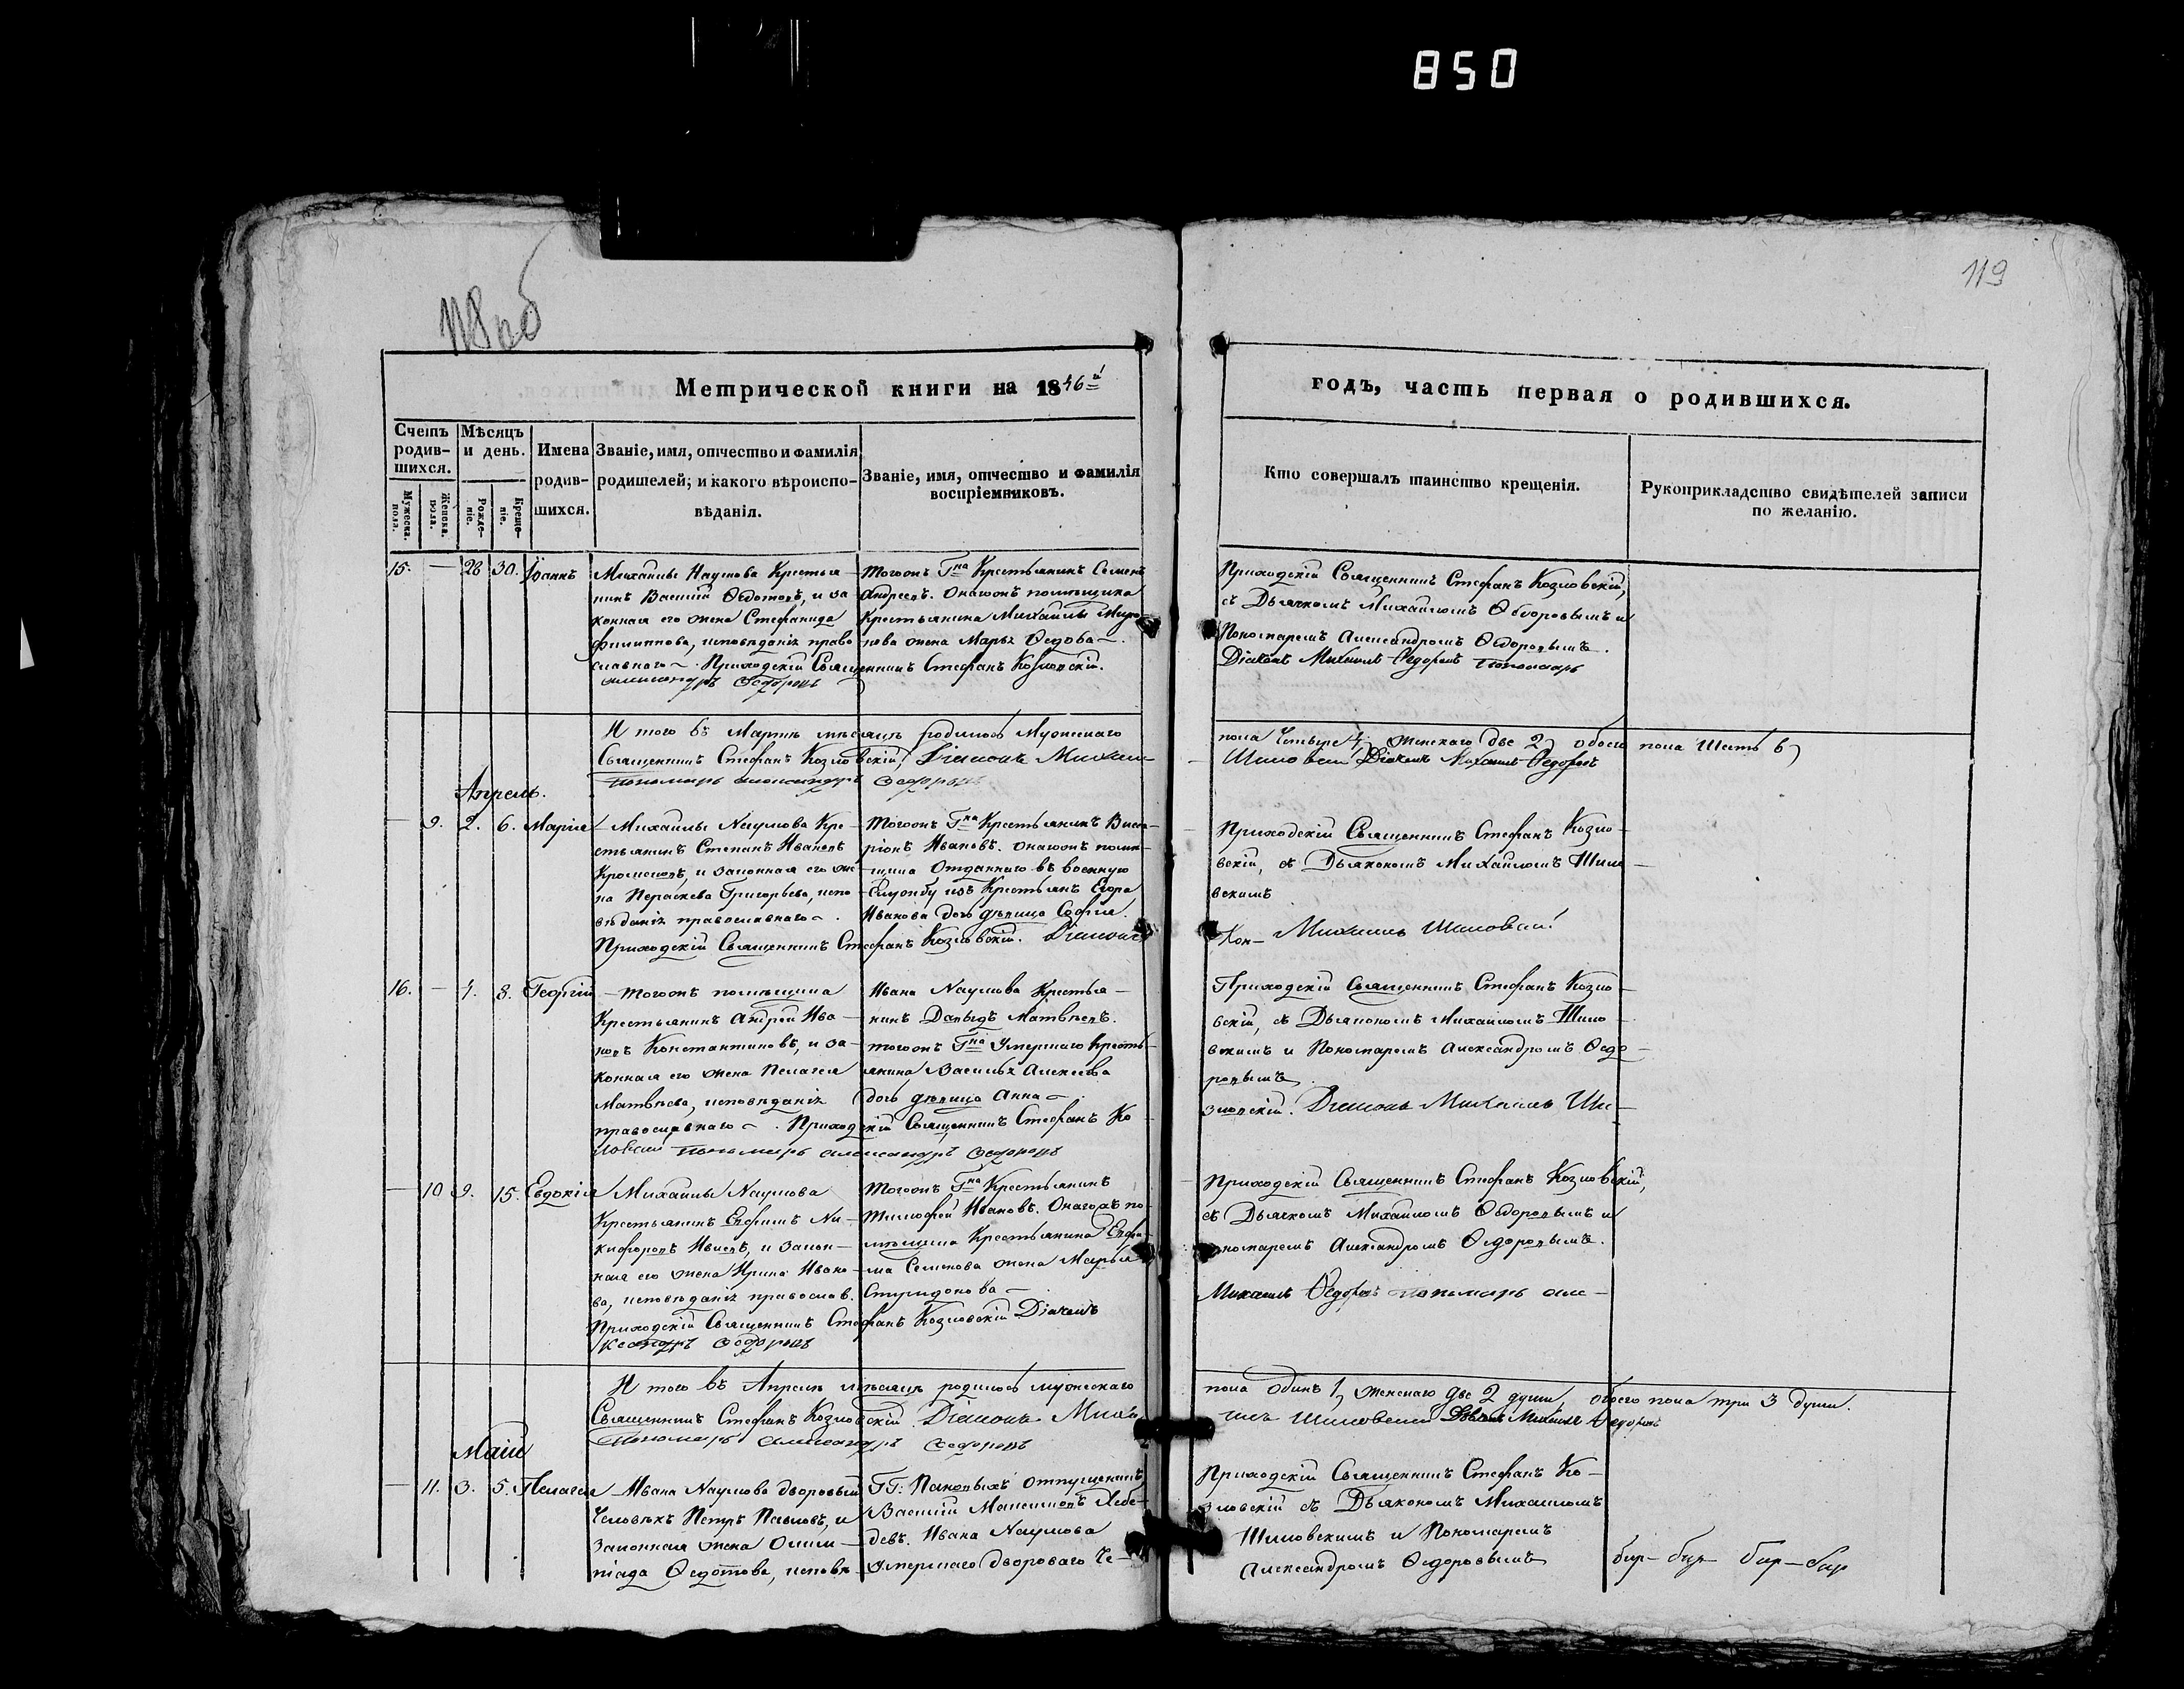 850
118 об
119
Метрической книги на 1846й
годъ, часть первая о родившихся.
Счетъ родив-шихся.
Мужеска. пола.
Женска. пола.
Мѣсяцъ и день.
Рожде-ніе.
Креще-ніе.
Имена родив-шихся.
Званіе, имя, отчество и фамилія
родителей; и какого вѣроиспо-
вѣданія.
Званіе, имя, отчество и фамилія
воспріемниковъ.
Кто совершалъ таинство крещенія.
Рукоприкладство свидѣтелей записи
по желанію.
15. — 28 30. Іоаннъ
Михаилы Наумова Крестья-
нинъ Василій Ѳедотовъ, и за
конная его жена Стефанида
Филиппова, исповѣданія право
славнаго. Приходскій Священникъ Стефанъ Козловскій.
Александръ Ѳедоровъ
Тогожъ Гна Крестьянинъ Семенъ
Андреевъ. Онагожъ помѣщика
Крестьянина Михаилы Миро-
нова жена Марья Ѳедова.
Приходскій Священникъ Стефанъ Козловскій,
съ Дьячкомъ Михаиломъ Ѳедоровымъ и
Пономаремъ Александромъ Ѳедоровымъ.
Діаконъ Михаилъ Ѳедоровъ Пономарь
И того въ Мартѣ мѣсяцѣ родилось Мужескаго
пола Четыре 4, Женскаго две 2, обоего пола Шесть 6,
Священникъ Стефанъ Козловскій, Діаконъ Михаилъ
Шиловскій Діаконъ Михаилъ Ѳедоровъ
Пономарь Александръ Ѳедоровъ
Апрель.
— 9. 2. 6. Марія
Михаилы Наумова Кре-
стьянинъ Степанъ Ивановъ
и законная его же-
на Параскева Григорьева, испо-
вѣданія православнаго.
Приходскій Священникъ Стефанъ Козловскій. Діакон
Тогожъ Гна Крестьянинъ
Ивановъ. Онагожъ помѣ-
щика Отданнаго въ военную
Службу изъ Крестьянъ Егора
Иванова дочь дѣвица Софія.
Приходскій Священникъ Стефанъ Козло-
вскій, съ Дьякономъ Михаиломъ Шило-
вскимъ
Михаилъ Шиловскій
16. — 4. 8. Георгій
Тогожъ помѣщика
Крестьянинъ Андрей Ива-
новъ Константиновъ, и за-
конная его жена Пелагея
Матвѣева, исповѣданія
православнаго. Приходскій Священникъ Стефанъ Ко-
ловскій Пономарь Александръ Ѳедоровъ
Ивана Наумова Крестья-
нинъ Давыдъ Матвѣевъ.
Тогожъ Гна Умершаго Кресть-
янина Василья Алексѣева
дочь дѣвица Анна.
Приходскій Священникъ Стефанъ Козло-
вскій, съ Дьякономъ Михаиломъ Шило-
вскимъ и Пономаремъ Александромъ Ѳедо-
ровымъ.
зловскій. Діаконъ Михаилъ Ши-
— 10 9. 15. Евдокія
Михаилы Наумова
Крестьянинъ Ефимъ Ни-
кифоровъ и закон-
ная его жена Ирина Ивано-
ва, исповѣданія православ.
Приходскій Священникъ Стефанъ Козловскій Діаконъ
ксандръ Ѳедоровъ
Тогожъ Гна Крестьянинъ
Тимофей Ивановъ. Онагожъ по-
мѣщика Крестьянина Ефи-
ма Семенова жена Марья
Спиридонова
Приходскій Священникъ Стефанъ Козловскій,
съ Дьячкомъ Михаиломъ Ѳедоровымъ и
Пономаремъ Александромъ Ѳедоровымъ.
Михаилъ Ѳедоровъ Пономарь Але-
И того въ Апрелѣ мѣсяцѣ родилось мужескаго
пола одинъ 1, женскаго две 2 души, обоего пола три 3 души.
Священникъ Стефанъ Козловскій Діаконъ Миха
илъ Шиловскій Михаилъ Ѳедоровъ
Пономарь Александръ Ѳедоровъ
Маій
— 11. 3. 5. Пелагея
Ивана Наумова дворовый
Человѣкъ Петръ Павловъ, и
Законная жена Олим-
піада Ѳедотова, исповѣ-
ГГ: Пановыхъ отпущенникъ
Василій Лебе-
девъ. Ивана Наумова
Умершаго дворового Че-
Приходскій Священникъ Стефанъ Ко-
зловскій съ Дьякономъ Михаиломъ
Шиловскимъ и Пономаремъ
Александромъ Ѳедоровымъ